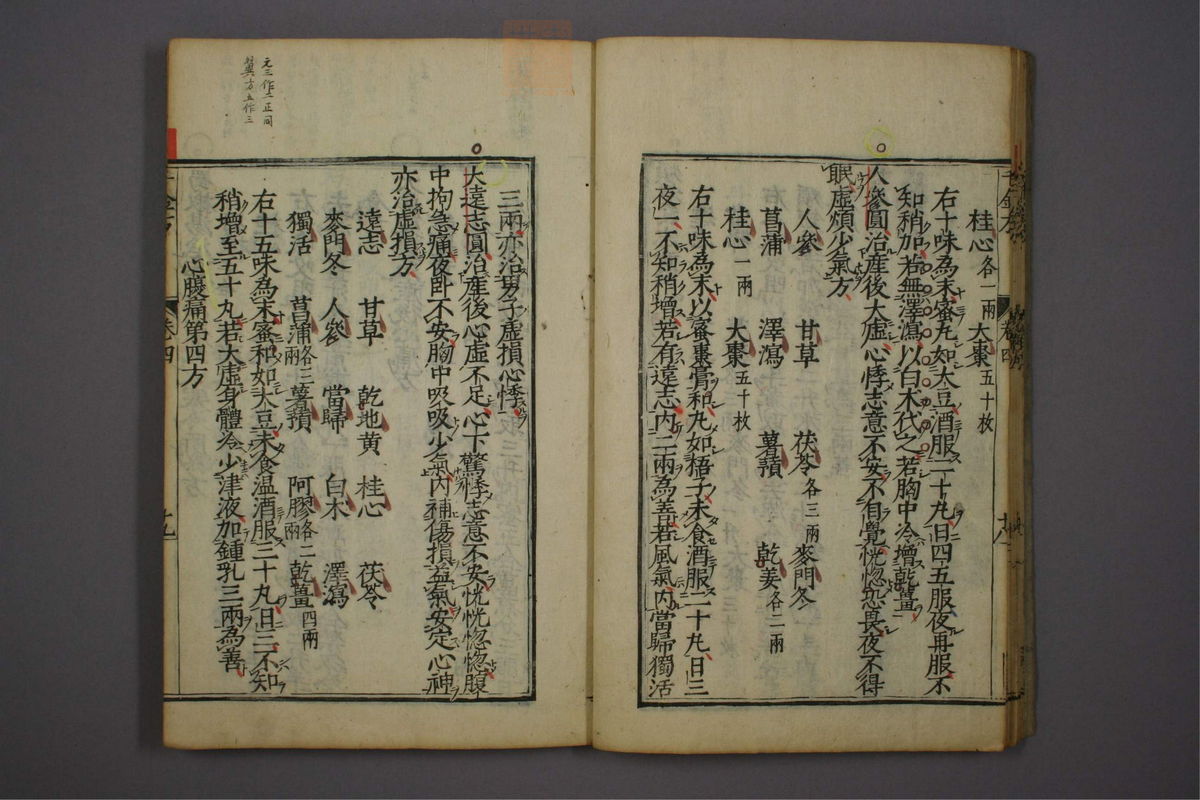 桂心各一兩 大棗五十枚
右十味為末蜜丸如大豆酒服二十丸日四五服夜再服不
知稍加若無澤瀉以白朮代之若胸中冷增乾薑
人參圓治產後大虛心悸志意不安不自覺恍惚恐畏夜不得
眠虛煩少氣方
人參 甘草 茯苓各三兩 麥門冬
菖蒲 澤瀉 薯蕷 乾姜各二兩
桂心一兩 大棗五十枚
右十味為末以蜜棗膏和丸如梧子未食酒服二十丸日三
夜一不知稍增若有遠志內二兩為善若風氣內當歸獨活
三兩亦治男子虛損心悸
大遠志圓治產後心虛不足心下驚悸志意不安恍恍惚惚腹
中拘急痛夜臥不安胸中吸吸少氣內補傷損益氣安定心神
亦治虛損方
遠志 甘草 乾地黃 桂心 茯苓
麥門冬 人參 當歸 白朮 澤瀉
獨活 菖蒲各三兩 薯蕷 阿膠各二兩 乾薑四兩
右十五味為末蜜和如大豆未食温酒服二十丸日三不知
稍增至五十丸若大虛身體冷少津液加鍾乳三兩為善
心腹痛第四方
千金方 卷四 十九
元三作二正同
翼方五作三
卷四